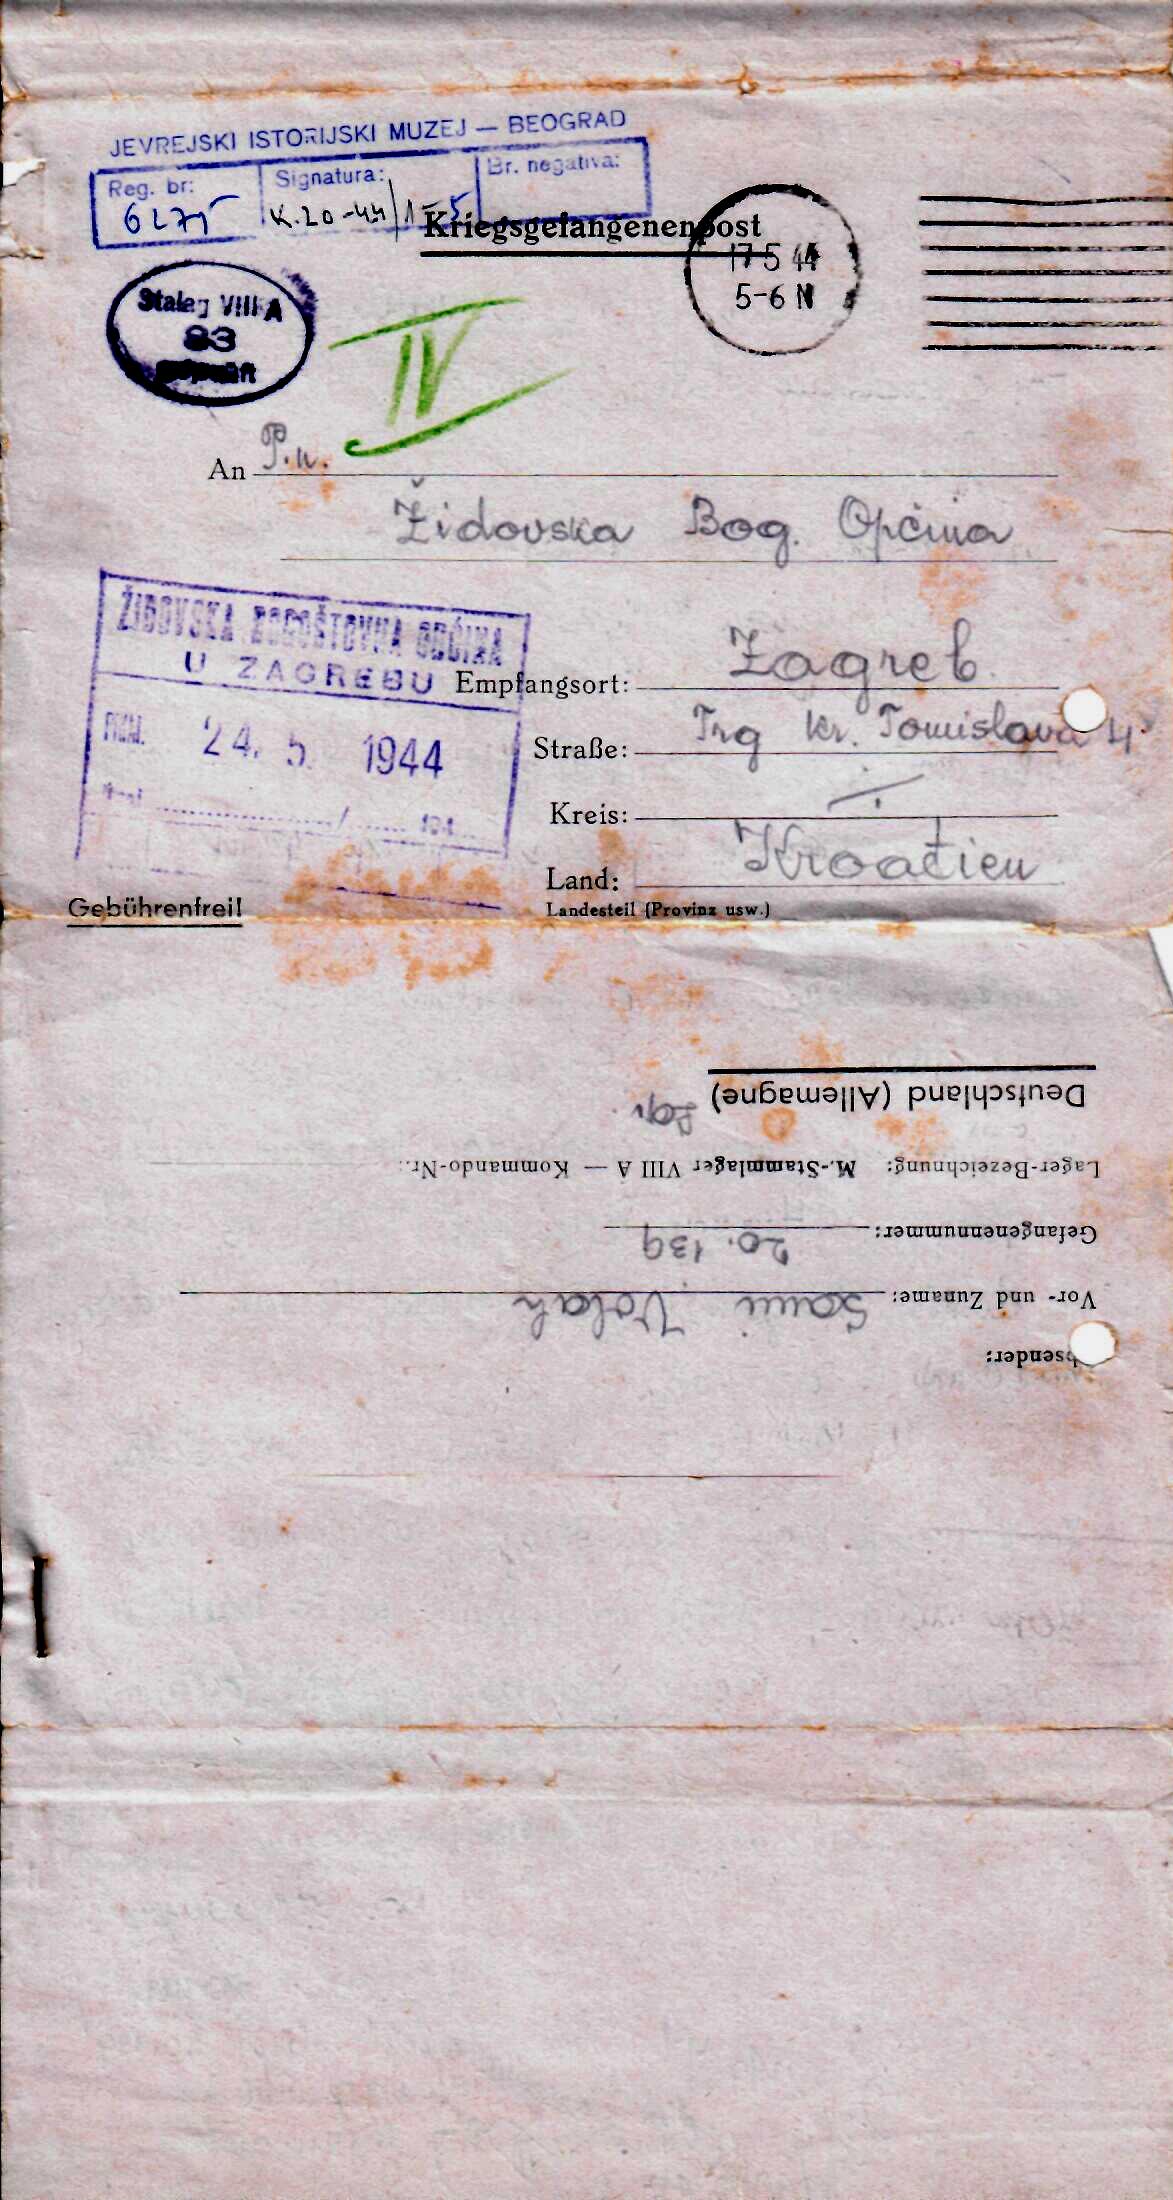 JEVREJSKI ISTORIJSKI MUZEJ — BEOGRAD
Reg. br: Signatura: Br. negativa:
6275 K.20-44/1-5
Kriegsgefangenenpost
17 5 44
5-6 N
Stalag VIII A
83
geprüft
IV
An P.n.
Židovska Bog. Općina
ŽIDOVSKA BOGOŠTOVNA OPĆINA
U ZAGREBU
24. 5. 1944
Empfangsort: Zagreb
Straße: Trg kr. Tomislava 4
Kreis:
Land: Kroatien
Landesteil (Provinz usw.)
Gebührenfrei!
Absender:
Vor- und Zuname: Sami
Gefangenennummer: 20.139
Lager-Bezeichnung: M.-Stammlager VIII A — Kommando-Nr.:
Deutschland (Allemagne)